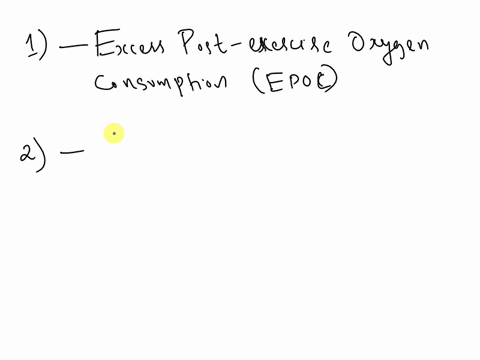 1) — Excess Post-exercise Oxygen
Consumption (EPOC)
2) —